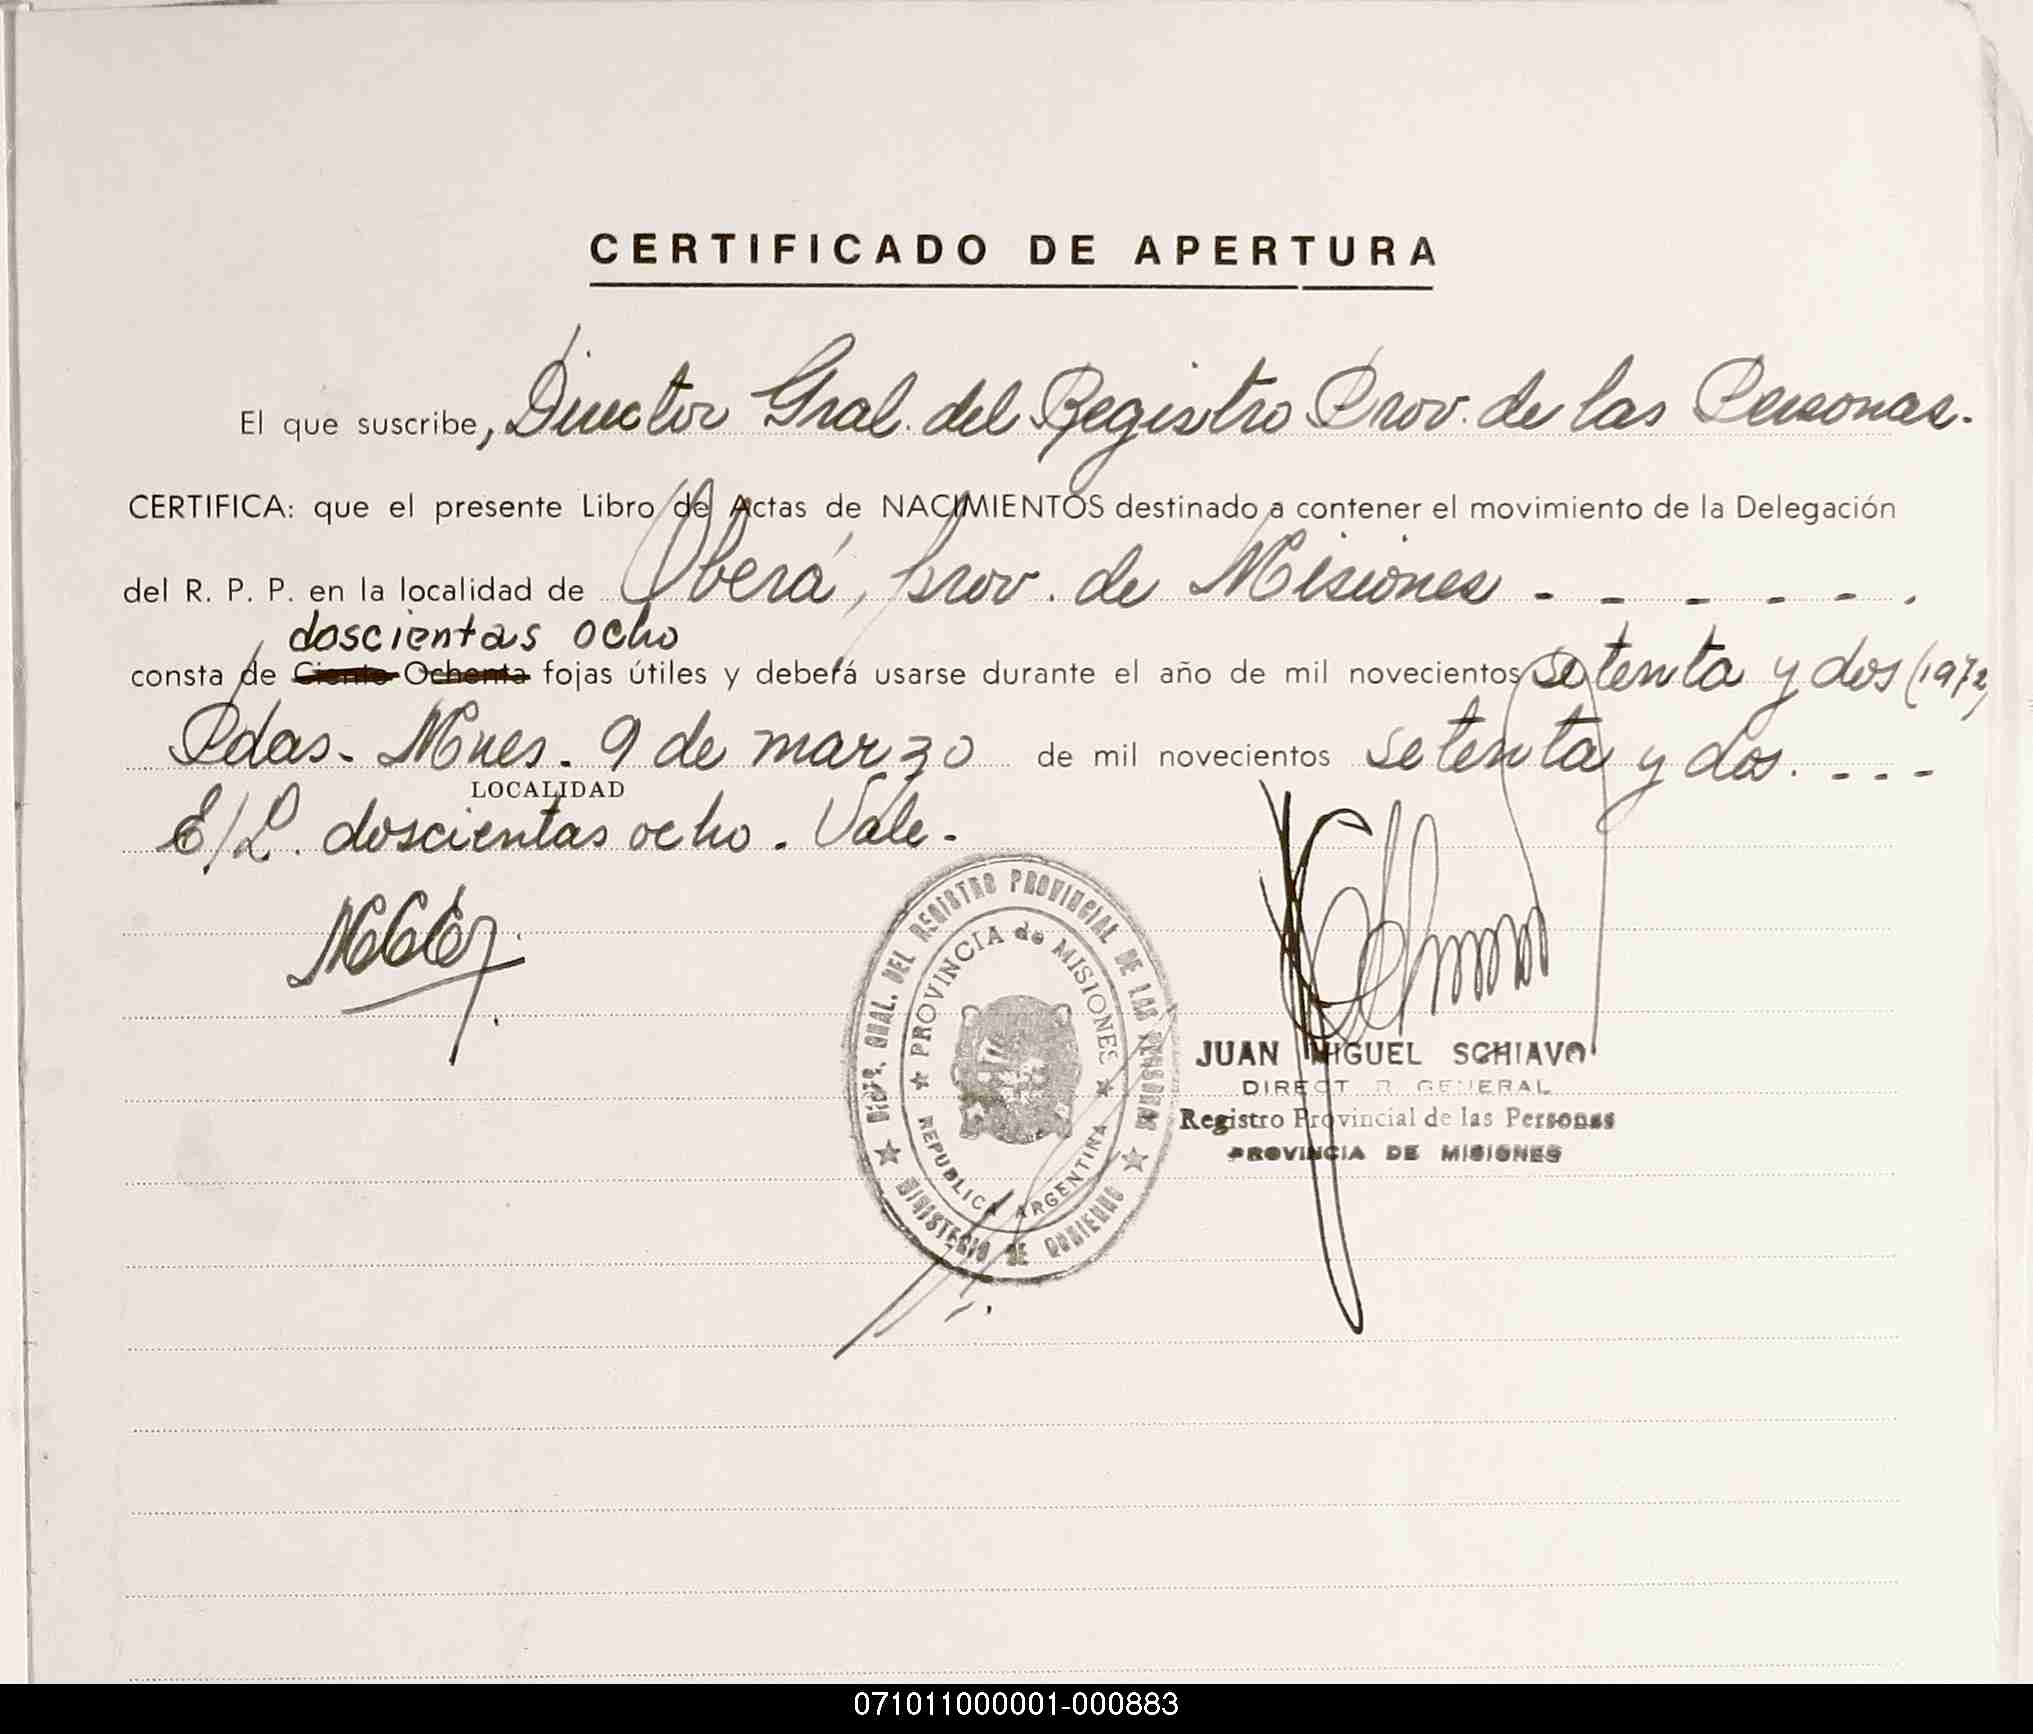 CERTIFICADO DE APERTURA
El que suscribe, Director Gral. del Registro Prov. de las Personas.
CERTIFICA: que el presente Libro de Actas de NACIMIENTOS destinado a contener el movimiento de la Delegación
del R. P. P. en la localidad de Oberá, prov. de Misiones - - - - - .
doscientas ocho
consta de Ciento Ochenta fojas útiles y deberá usarse durante el año de mil novecientos setenta y dos (1972)
Pdas. Mnes. 9 de marzo de mil novecientos setenta y dos. - - -
LOCALIDAD
E/L. doscientas ocho. Vale.-
DICTR. GRAL. DEL REGISTRO PROVINCIAL DE LAS PERSONAS
PROVINCIA de MISIONES
REPUBLICA ARGENTINA
MINISTERIO DE GOBIERNO
JUAN MIGUEL SCHIAVO
DIRECT R GENERAL
Registro Provincial de las Personas
PROVINCIA DE MISIONES
071011000001-000883